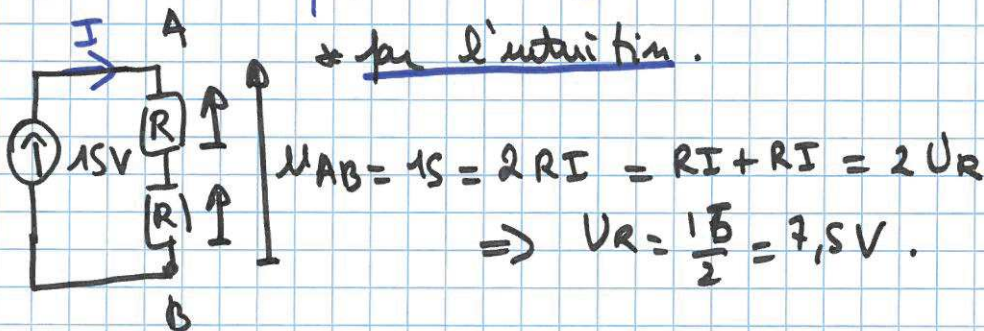 I A
* par l'intuition.
R
15V
R
UAB = 15 = 2RI = RI + RI = 2UR
=> UR = 15/2 = 7,5V.
B